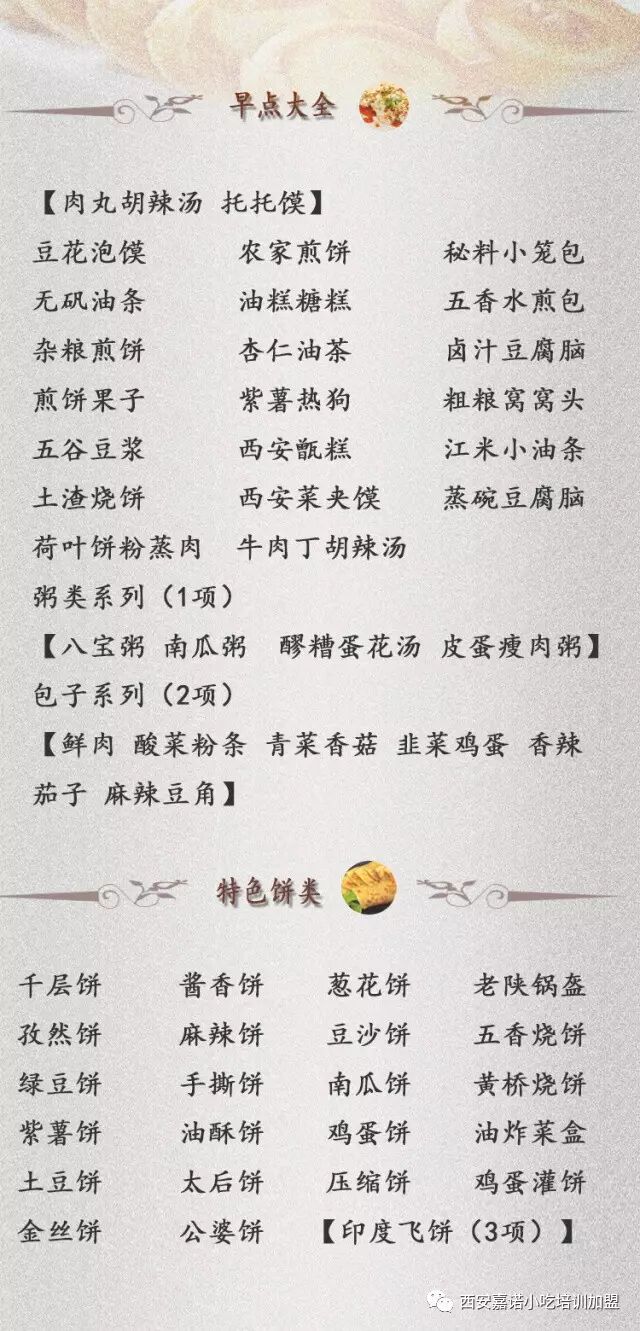 早点大全
【肉丸胡辣汤 托托馍】
豆花泡馍 农家煎饼 秘料小笼包
无矾油条 油糕糖糕 五香水煎包
杂粮煎饼 杏仁油茶 卤汁豆腐脑
煎饼果子 紫薯热狗 粗粮窝窝头
五谷豆浆 西安甑糕 江米小油条
土渣烧饼 西安菜夹馍 蒸碗豆腐脑
荷叶饼粉蒸肉 牛肉丁胡辣汤
粥类系列（1项）
【八宝粥 南瓜粥 醪糟蛋花汤 皮蛋瘦肉粥】
包子系列（2项）
【鲜肉 酸菜粉条 青菜香菇 韭菜鸡蛋 香辣
茄子 麻辣豆角】
特色饼类
千层饼 酱香饼 葱花饼 老陕锅盔
孜然饼 麻辣饼 豆沙饼 五香烧饼
绿豆饼 手撕饼 南瓜饼 黄桥烧饼
紫薯饼 油酥饼 鸡蛋饼 油炸菜盒
土豆饼 太后饼 压缩饼 鸡蛋灌饼
金丝饼 公婆饼 【印度飞饼（3项）】
西安嘉诺小吃培训加盟